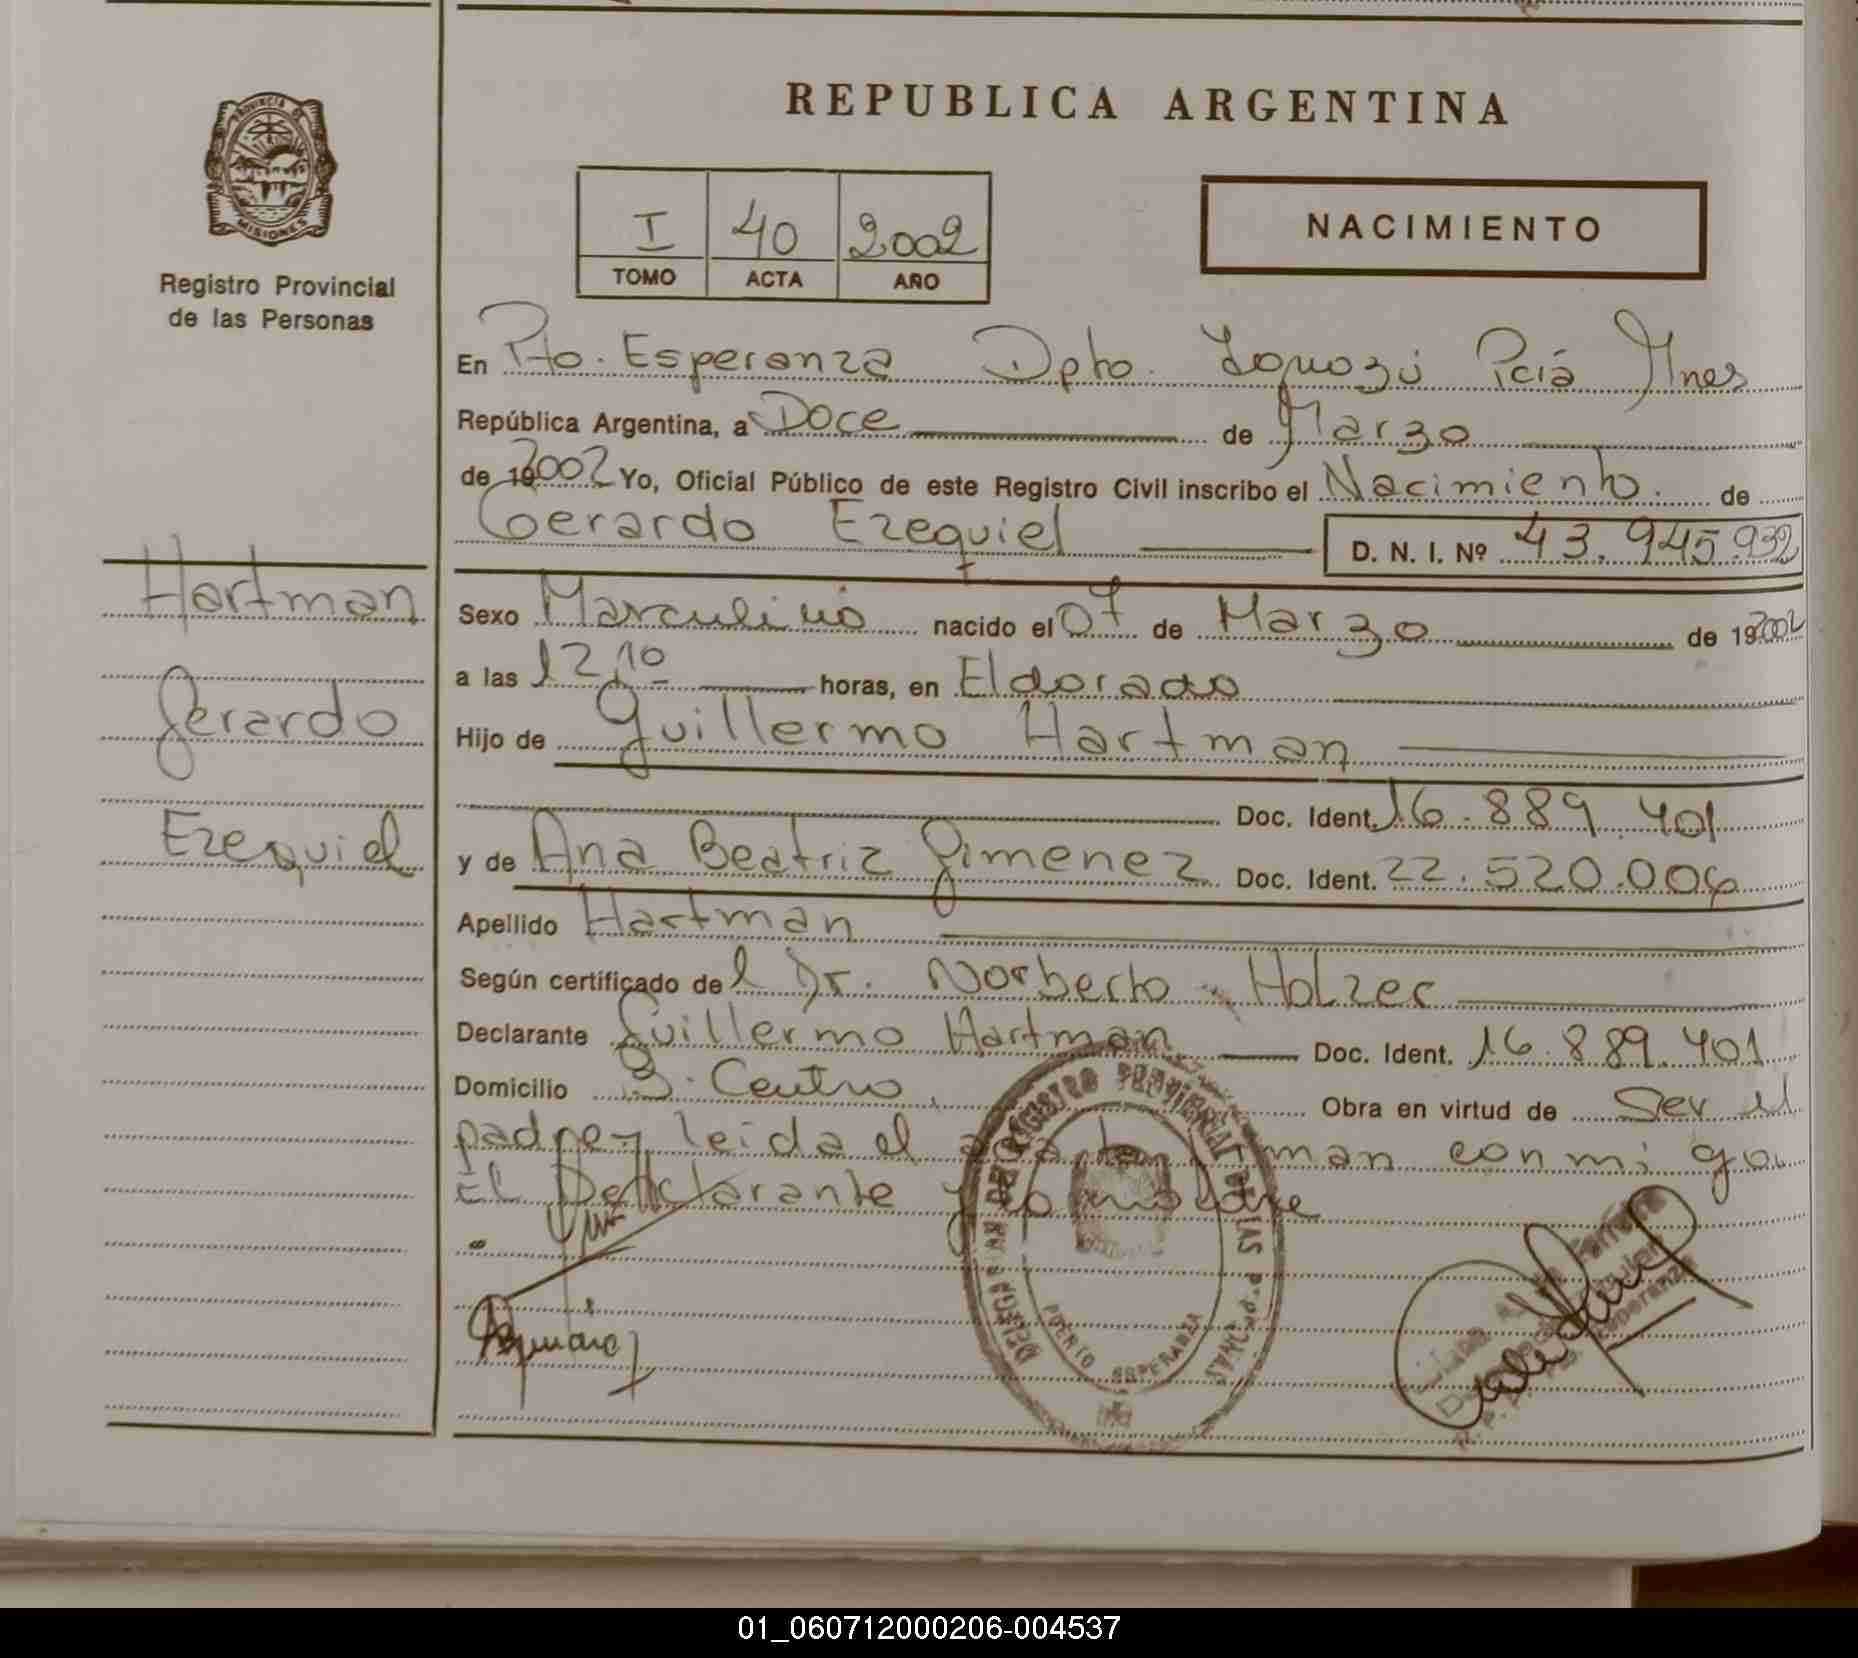 REPUBLICA ARGENTINA
PROVINCIA DE
MISIONES
Registro Provincial
de las Personas
I 40 2002
TOMO ACTA AÑO
NACIMIENTO
En Pto. Esperanza Dpto. Iguazú Pciá Mnes
República Argentina, a Doce de Marzo
de 192002 Yo, Oficial Público de este Registro Civil inscribo el Nacimiento. de
Gerardo Ezequiel D. N. I. Nº 43.945.932
Hartman
Gerardo
Ezequiel
Sexo Masculino nacido el 07 de Marzo de 192002
a las 12,10 horas, en Eldorado
Hijo de Guillermo Hartman
Doc. Ident. 16.889.401
y de Ana Beatriz Gimenez Doc. Ident. 22.520.006
Apellido Hartman
Según certificado del Dr. Norberto Holzer
Declarante Guillermo Hartman Doc. Ident. 16.889.401
Domicilio B. Centro, Obra en virtud de Ser el
padre y leida el acta firman con mi go.
El Declarante y la madre
REGISTRO PROVINCIAL DE LAS PERSONAS
PUERTO ESPERANZA
Esperanza
01_060712000206-004537